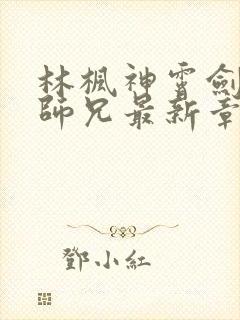 林楓神霄劍
師兄最新章
鄧小紅